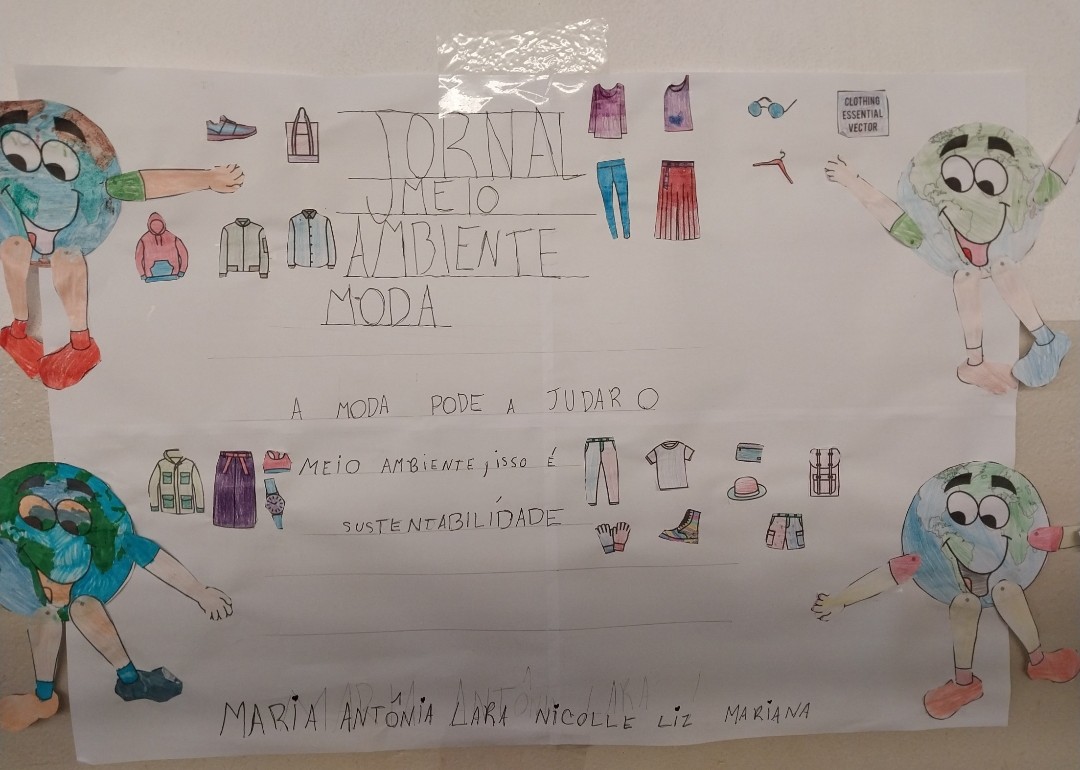 JORNAL
MEIO
AMBIENTE
MODA
CLOTHING
ESSENTIAL
VECTOR
A MODA PODE A JUDAR O
MEIO AMBIENTE, isso É
SUSTENTABILÍDADE
MARIA ANTÔNIA LARA NICOLLE LIZ MARIANA